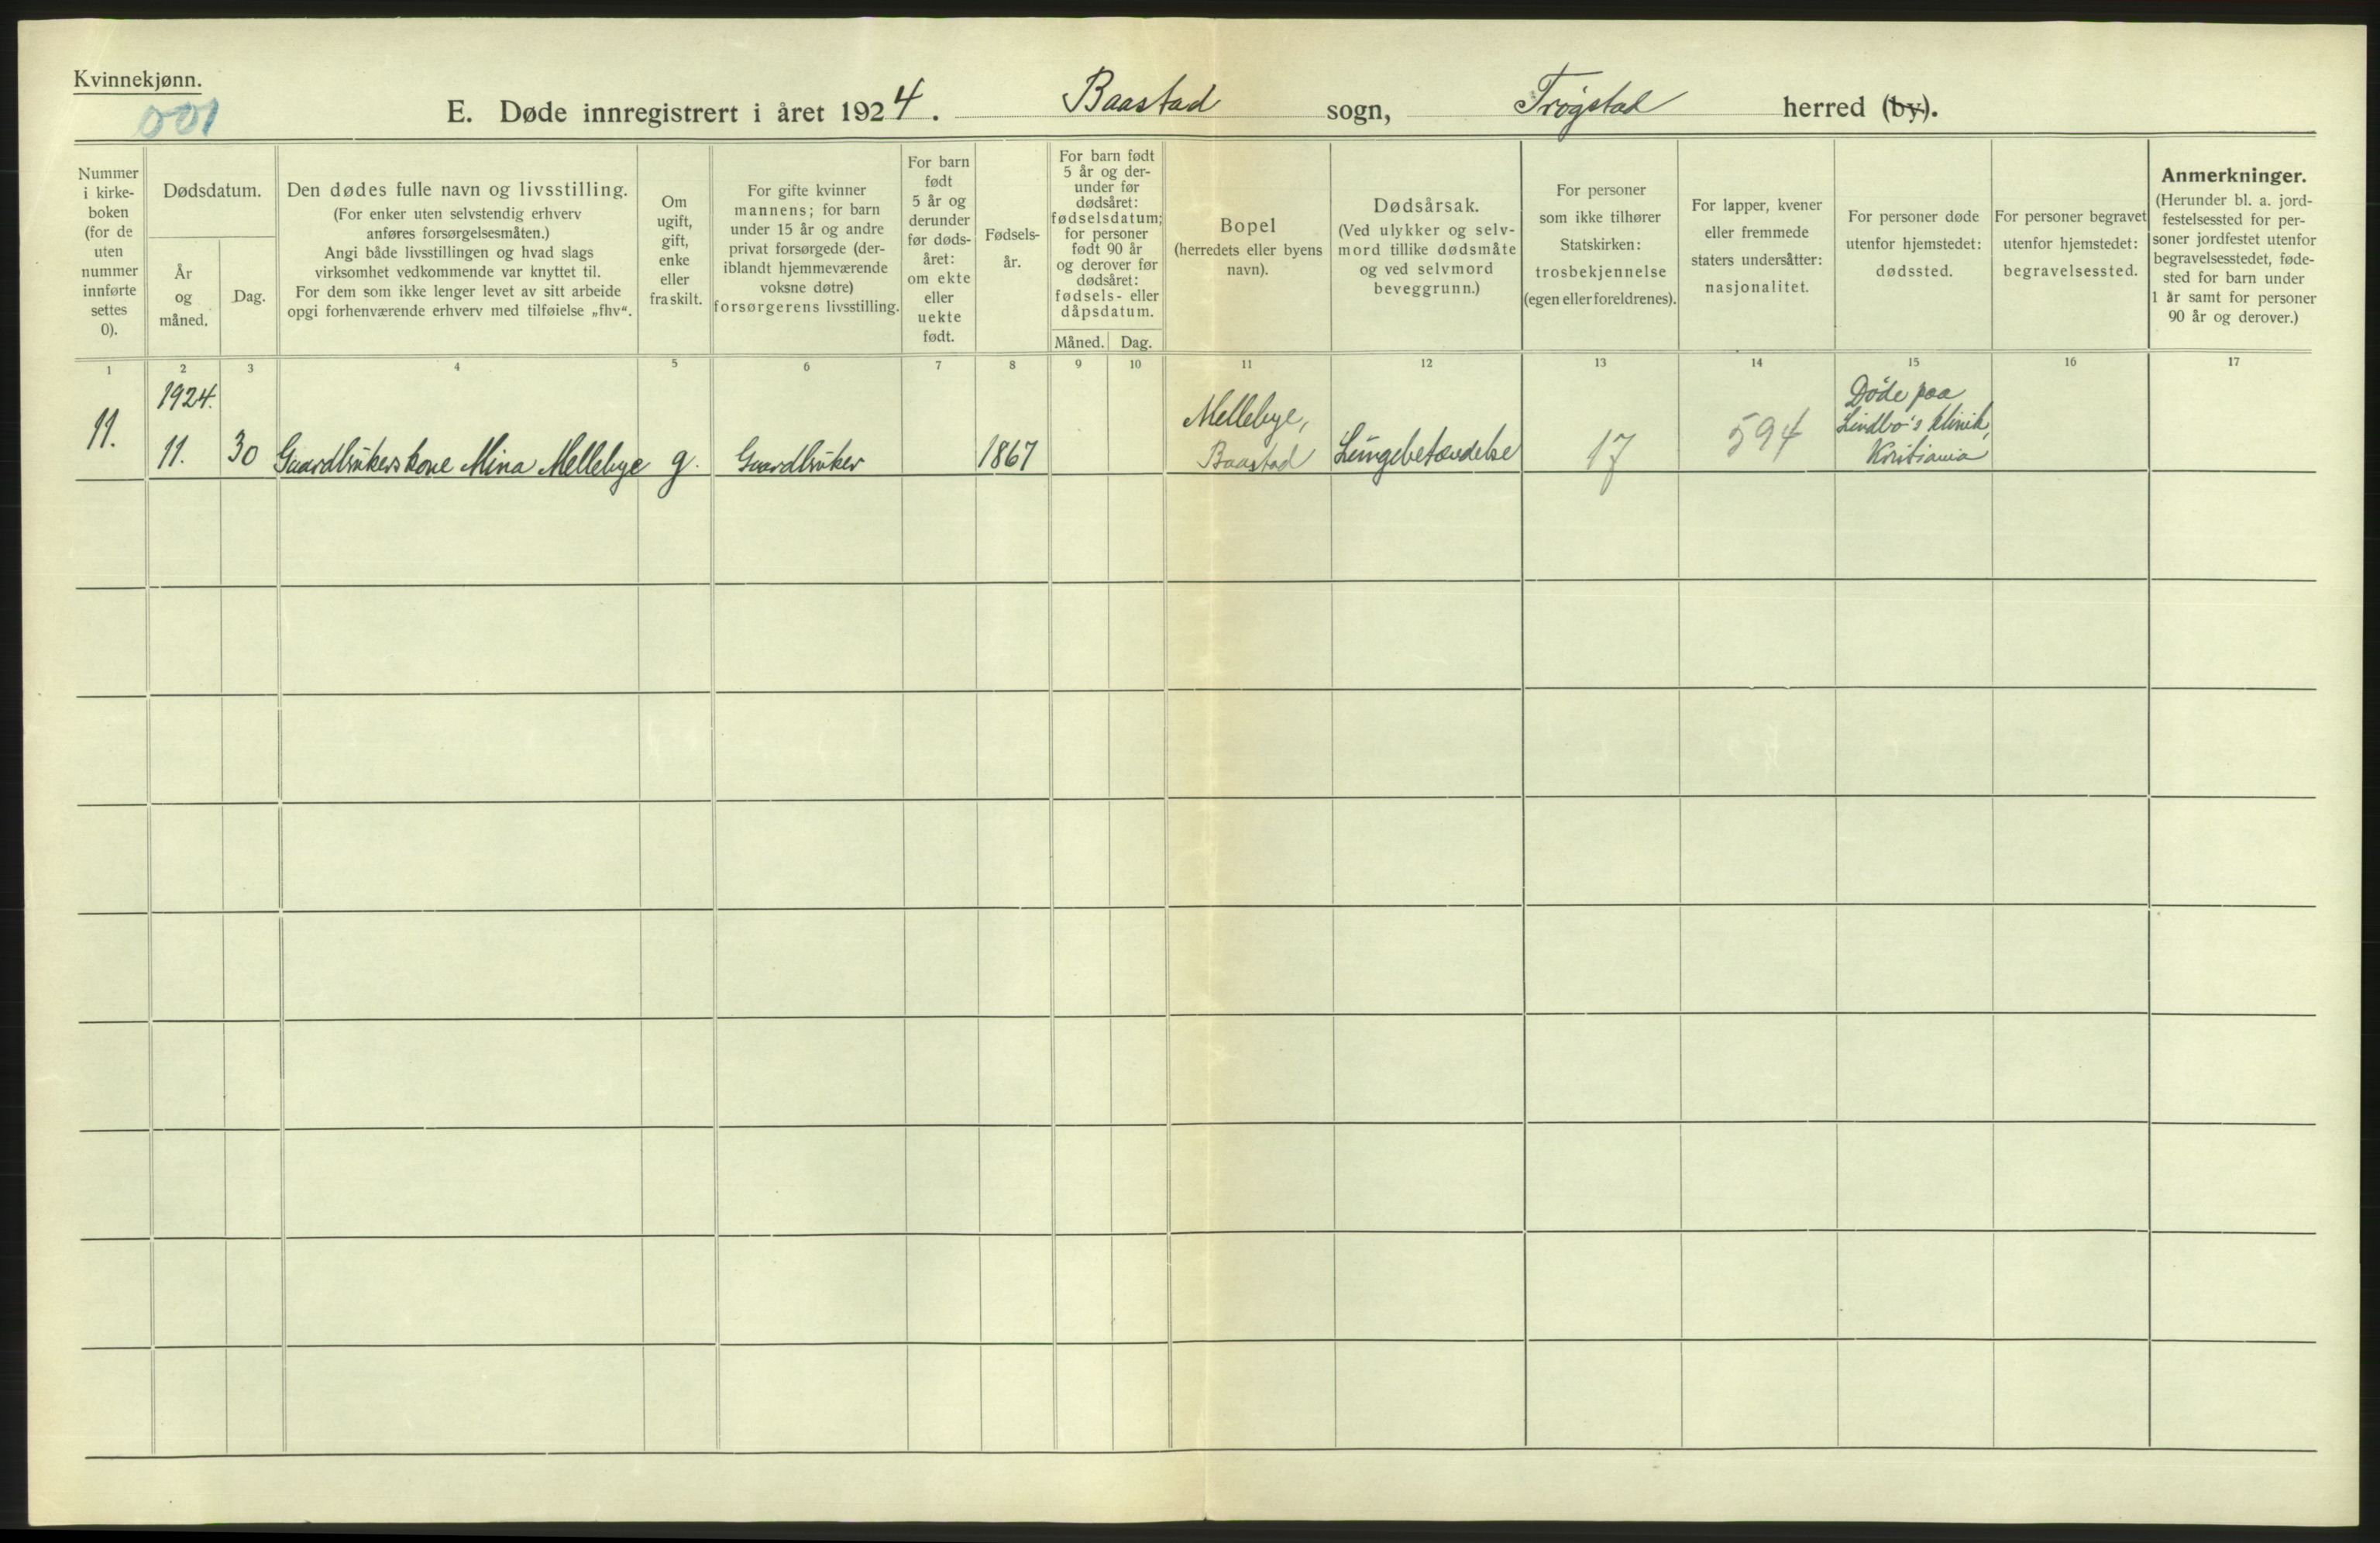 Kvinnekjønn.
001
E. Døde innregistrert i året 1924. Baastad sogn, Trøgstad herred (by).
Nummer
i kirke-
boken
(for de
uten
nummer
innførte
settes
0).
Dødsdatum.
År
og
måned.
Dag.
Den dødes fulle navn og livsstilling.
(For enker uten selvstendig erhverv
anføres forsørgelsesmåten.)
Angi både livsstillingen og hvad slags
virksomhet vedkommende var knyttet til.
For dem som ikke lenger levet av sitt arbeide
opgi forhenværende erhverv med tilføielse „fhv“.
Om
ugift,
gift,
enke
eller
fraskilt.
For gifte kvinner
mannens; for barn
under 15 år og andre
privat forsørgede (der-
iblandt hjemmeværende
voksne døtre)
forsørgerens livsstilling.
For barn
født
5 år og
derunder
før døds-
året:
om ekte
eller
uekte
født.
Fødsels-
år.
For barn født
5 år og der-
under før
dødsåret:
fødselsdatum;
for personer
født 90 år
og derover før
dødsåret:
fødsels- eller
dåpsdatum.
Måned.
Dag.
Bopel
(herredets eller byens
navn).
Dødsårsak.
(Ved ulykker og selv-
mord tillike dødsmåte
og ved selvmord
beveggrunn.)
For personer
som ikke tilhører
Statskirken:
trosbekjennelse
(egen eller foreldrenes).
For lapper, kvener
eller fremmede
staters undersåtter:
nasjonalitet.
For personer døde
utenfor hjemstedet:
dødssted.
For personer begravet
utenfor hjemstedet:
begravelsessted.
Anmerkninger.
(Herunder bl. a. jord-
festelsessted for per-
soner jordfestet utenfor
begravelsesstedet, føde-
sted for barn under
1 år samt for personer
90 år og derover.)
1 2 3 4 5 6 7 8 9 10 11 12 13 14 15 16 17
1924.
11.
11. 30 Gaardbrukerskone Mina Mellebye g. Gaardbruker 1867
Mellebye,
Baastad
Lungebetændelse
17
594
Døde paa
Lindbo's klinik,
Kristiania